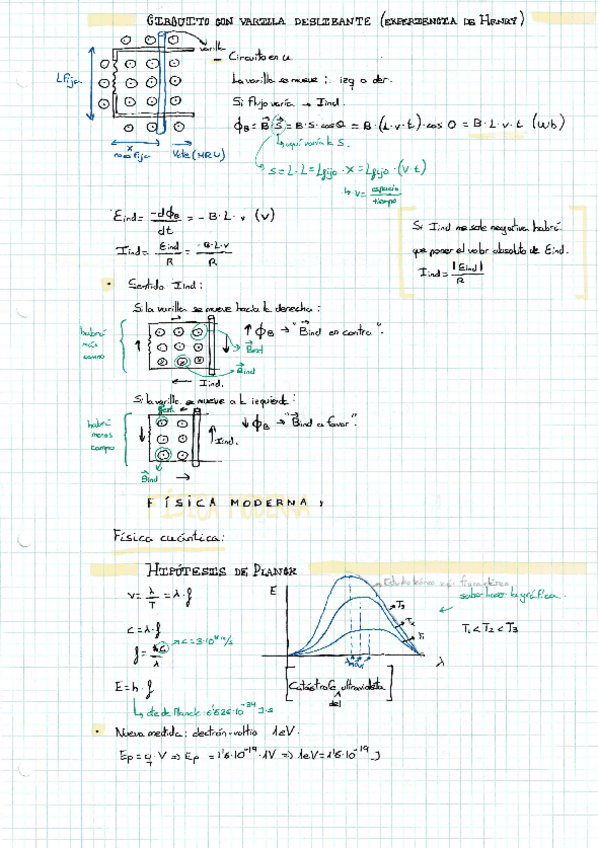 CIRCUITO CON VARILLA DESLIZANTE (EXPERIENCIA DE HENRY)
varilla
L fija
x
no es fijo
v cte (MRU)
- Circuito en u
La varilla se mueve: izq a der.
Si flujo varía → I ind.
ϕB = B⃗·S⃗ = B·S·cosθ = B·(L·v·t)·cos 0 = B·L·v·t (Wb)
↳ aquí varía la S.
S = L·L = L fijo · x = L fijo · (v·t)
↳ v = espacio / tiempo
Eind = -dϕB / dt = -B·L·v (V)
I ind = Eind / R = -B·L·v / R
Si I ind me sale negativa habrá
que poner el valor absoluto de Eind.
I ind = |Eind| / R
• Sentido I ind:
Si la varilla se mueve hacia la derecha:
habrá
más
campo
↑ ϕB → "B⃗ind en contra".
B⃗ind
B⃗ind
← I ind.
Si la varilla se mueve a la izquierda:
habrá
menos
campo
↓ ϕB → "B⃗ind a favor".
I ind.
B⃗ind
FÍSICA MODERNA
Física cuántica:
HIPÓTESIS DE PLANCK
v = λ / T = λ·f
c = λ·f
f = c / λ
→ c = 3·10⁸ m/s
E = h·f
↳ cte de Planck 6'626·10⁻³⁴ J·s
E
T3
T2
T1
λ
λ máx
saber hacer la gráfica.
T1 < T2 < T3
[Catástrofe ultravioleta]
del
• Nueva medida: electrón-voltio 1eV.
Ep = q·V ⇒ Ep = 1'6·10⁻¹⁹·1V ⇒ 1eV = 1'6·10⁻¹⁹ J